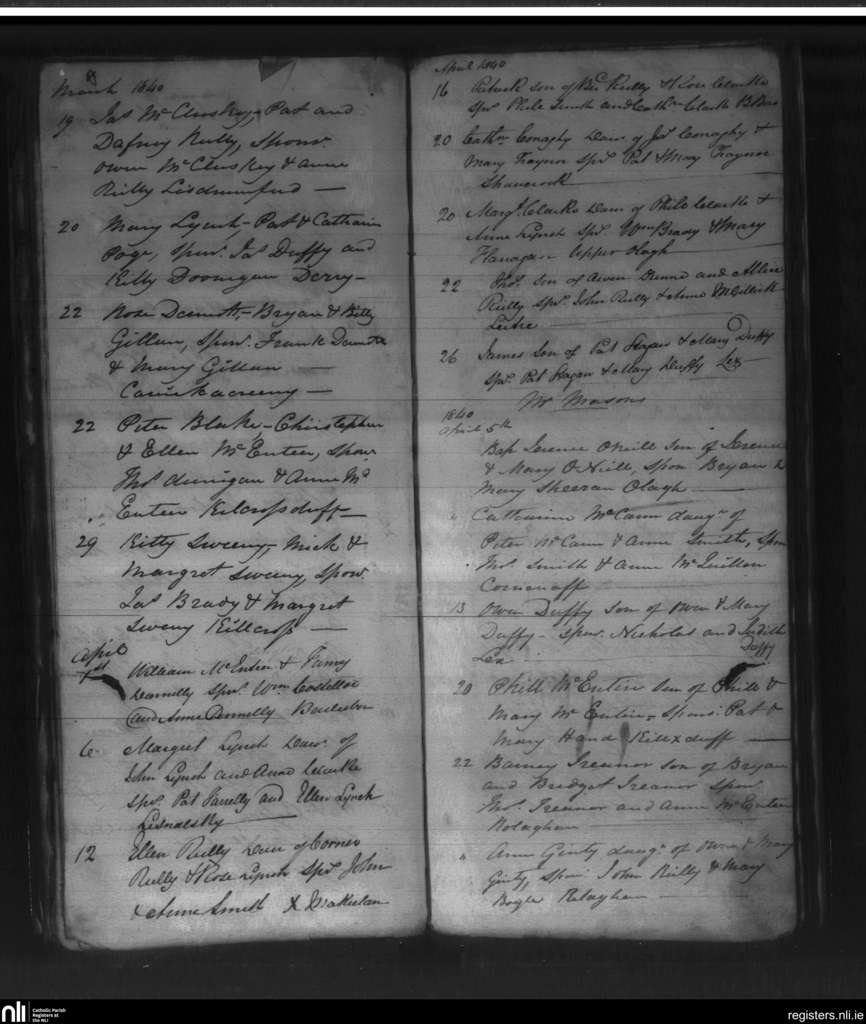 March 1840
19 Jas McCluskey, Pat and
Dafney Reilly, Sponr.
Owen McCluskey & Anne
Reilly
20 Mary Lynch - Pat & Catharine
Page, Sponr. Jas Duffy and
Kitty Doonigan Derry
22 Rose Dermott, - Bryan & Kitty
Gillan, Sponr. Frank Dermott
& Mary Gillan
22 Peter Blake, - Christopher
& Ellen McEnteer, Sponr
Thos Dunigan & Anne Mc
Enteer Kilcrossduff
29 Kitty Sweeny, Mick &
Margret Sweeny, Sponr.
Jas Brady & Margret
Sweny Killcross
April
1st William McEntee & Fanny
Connelly Spsr. Wm Costelloe
and Anne Donnelly
6 Margret Lynch Daur. of
John Lynch and Anne Clarke
Spsr. Pat Farrelly and Ellen Lynch
12 Ellen Reilly Daur of
Reilly & Rose Lynch Spsr. John
& Anne Smith
April 1840
16 Patrick son of Reilly & Rose Clarke
Spsr. Phile Smith and Cathn Clarke
20 Cathn Conaghy Daur of Jas Conaghy &
Mary Traynor Spsr. Pat & Mary Traynor
Shancrock
20 Margt. Clarke Daur of Phile Clarke &
Anne Lynch Spsr. Wm Brady & Mary
Flanagan Upper Olagh
22 Thos. son of Owen and
Reilly Spsr. John Reilly & Anne McGillick
Leitre
26 James son of Pat Fagan & Mary Duffy
Spsr. Pat Fagan & Mary Duffy Lex
Mr Masons
1840
April 5th
Bap Terence ONeill son of Terence
& Mary O'Neill, Spon Bryan &
Mary Sheeran Olagh
" Catharine McCann daugr of
Peter McCann & Anne Smith, Spon
Thos Smith & Anne McQuillan
Cornanaff
13 Owen Duffy son of Owen & Mary
Duffy - Sponr. Nicholas and Judith
Duffy
Lex
20 Phill McEnteer son of Phill &
Mary McEnteer, Spons: Pat &
Mary Hand Killxduff
22 Barney Treanor son of Bryan
and Bridget Treanor Sponr
Thos. Treanor and Anne McEnteer
Rolaghan
" Ann Ginty daugr of Owen & Mary
Ginty, Spon: John Reilly & Mary
Boyle Relaghan
nli Catholic Parish
Registers at
the NLI
registers.nli.ie